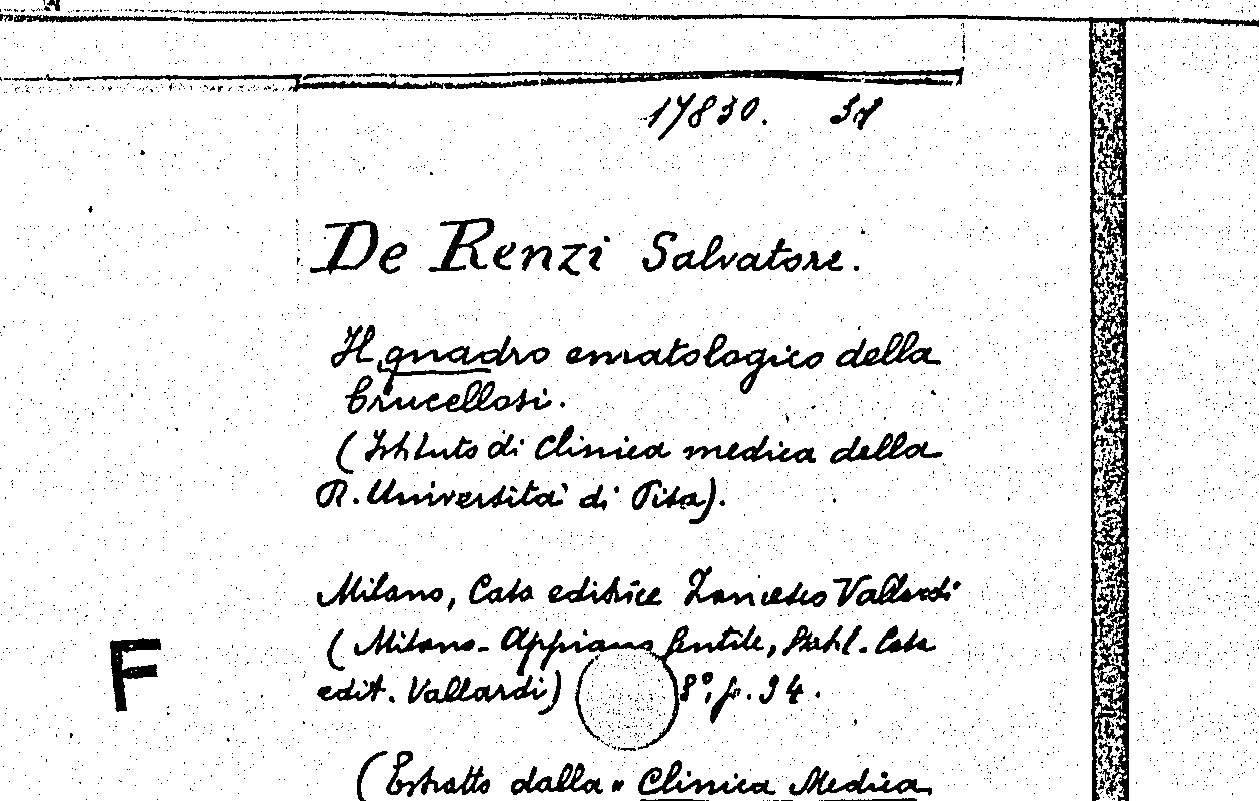 17830.
De Renzi Salvatore.
Il quadro ematologico della
brucellosi.
(Istituto di Clinica medica della
R. Università di Pisa).
Milano, Casa editrice Francesco Vallardi
(Milano-Appiano Gentile, Stabil. Casa
edit. Vallardi) 8°, p. 34.
F
(Estratto dalla "Clinica Medica